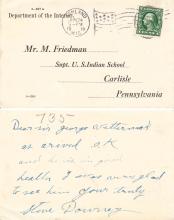 Department of the Interior
Mr. M. Friedman
Supt. U.S. Indian School
Carlisle
Pennsylvania
735
Dear sir george
as arived O.K
and he is in good
health I was very glad
to see him yours truly
Steve